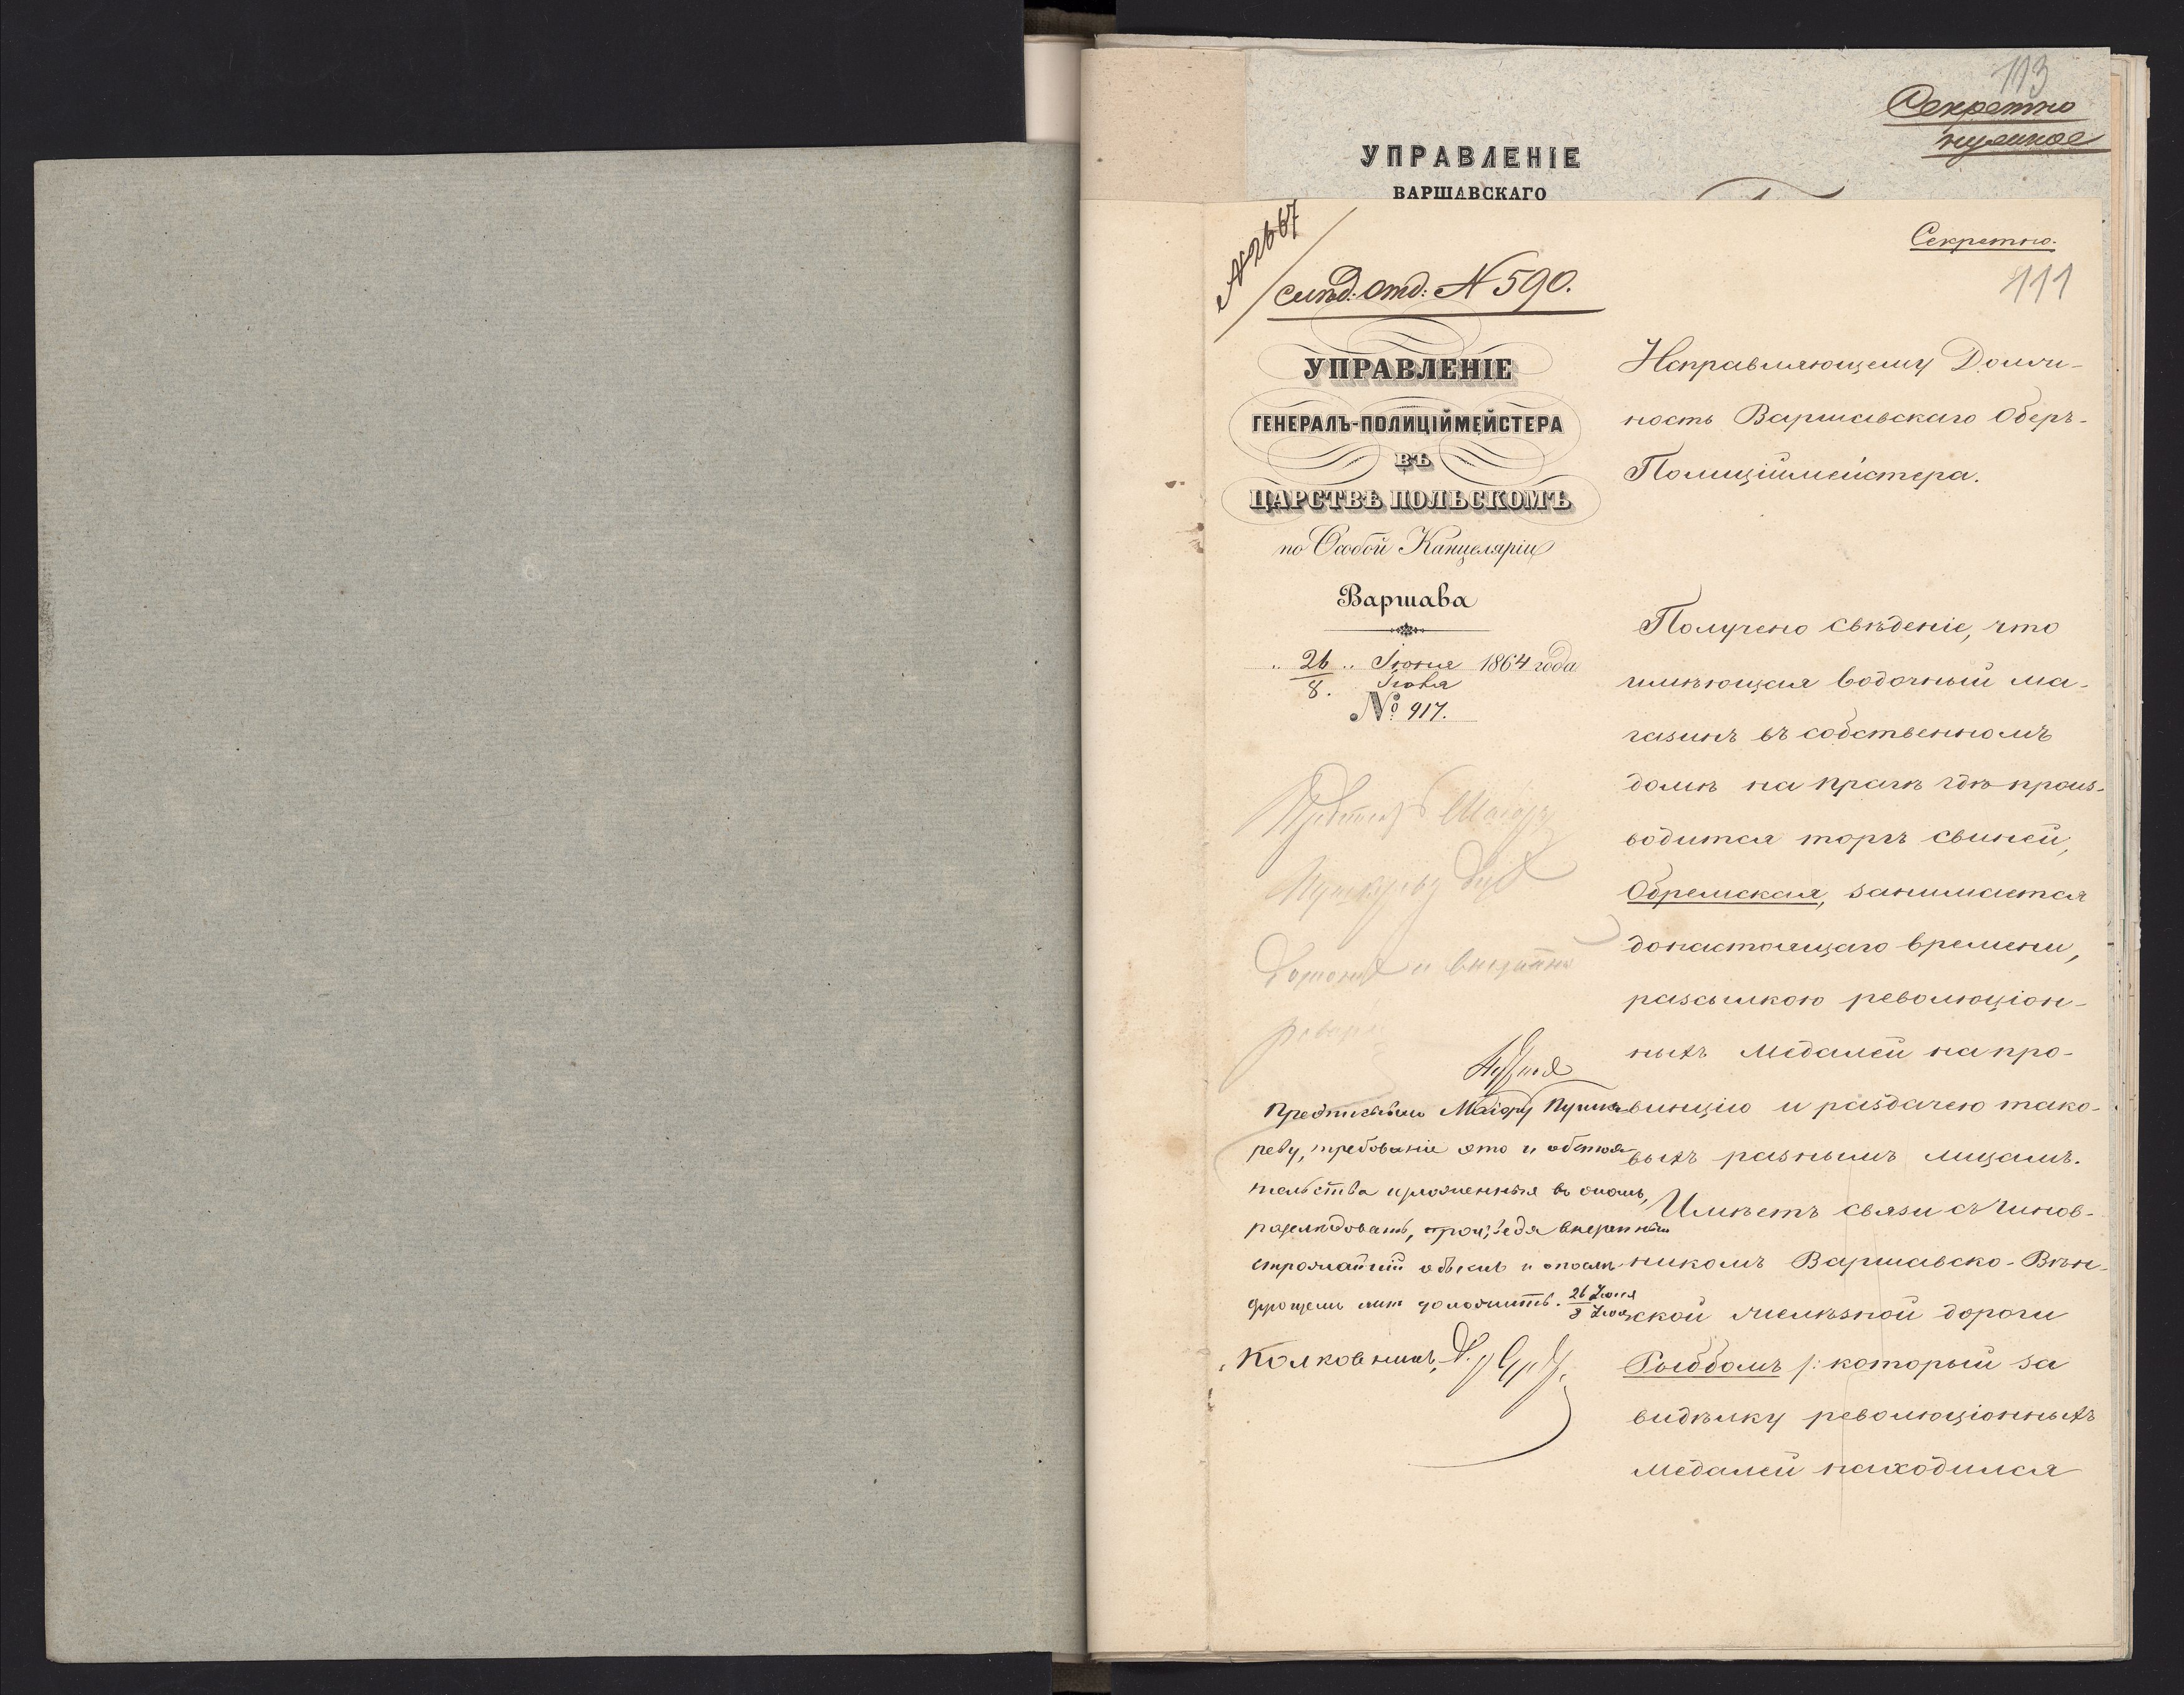 113
Секретно
нужное
УПРАВЛЕНІЕ
ВАРШАВСКАГО
Секретно.
111
№ 2667
след. Отд: № 590.
УПРАВЛЕНІЕ
ГЕНЕРАЛЪ-ПОЛИЦІЙМЕЙСТЕРА
ВЪ
ЦАРСТВѢ ПОЛЬСКОМЪ
по Особой Канцеляріи
Варшава
„ 26 „ Іюня 1864 года
8. Іюля
№ 917.
Исправляющему Долж-
ность Варшавскаго Оберъ-
Полиціймейстера.
Получено свѣденіе, что
имѣющая водочный ма-
газинъ въ собственномъ
домѣ на прагѣ гдѣ произ-
водится торгъ свиней,
Обремская, занимается
донастоящаго времени,
разсылкою революціон-
ныхъ медалей на про-
винцію и раздачею тако-
выхъ разнымъ лицамъ.
Имѣетъ связи съ Чинов-
никомъ Варшавско-Вѣн-
ской желѣзной дороги
который за
видѣлку революціонныхъ
медалей находился
Маіору
Предписываю Маіору Пушка-
реву, требованіе это и обстоя-
тельства изложенныя въ ономъ,
разслѣдовать, произведя внезапный
строжайшій обыскъ и о послѣ-
дующемъ мнѣ доложить. 26 Іюня
8 Іюля
Полковникъ